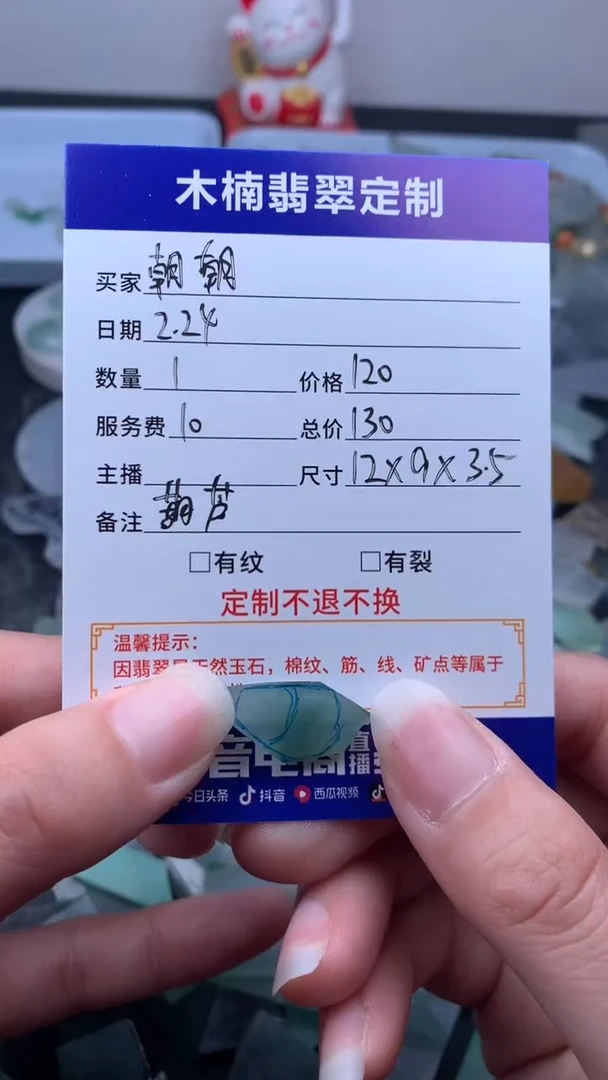 木楠翡翠定制
买家 朝朝
日期 2.24
数量 1 价格 120
服务费 10 总价 130
主播 尺寸 12×9×3.5
备注 葫芦
□有纹 □有裂
定制不退不换
温馨提示:
因翡翠 天然玉石，棉纹、筋、线、矿点等属于
音电商直播
今日头条 抖音 西瓜视频